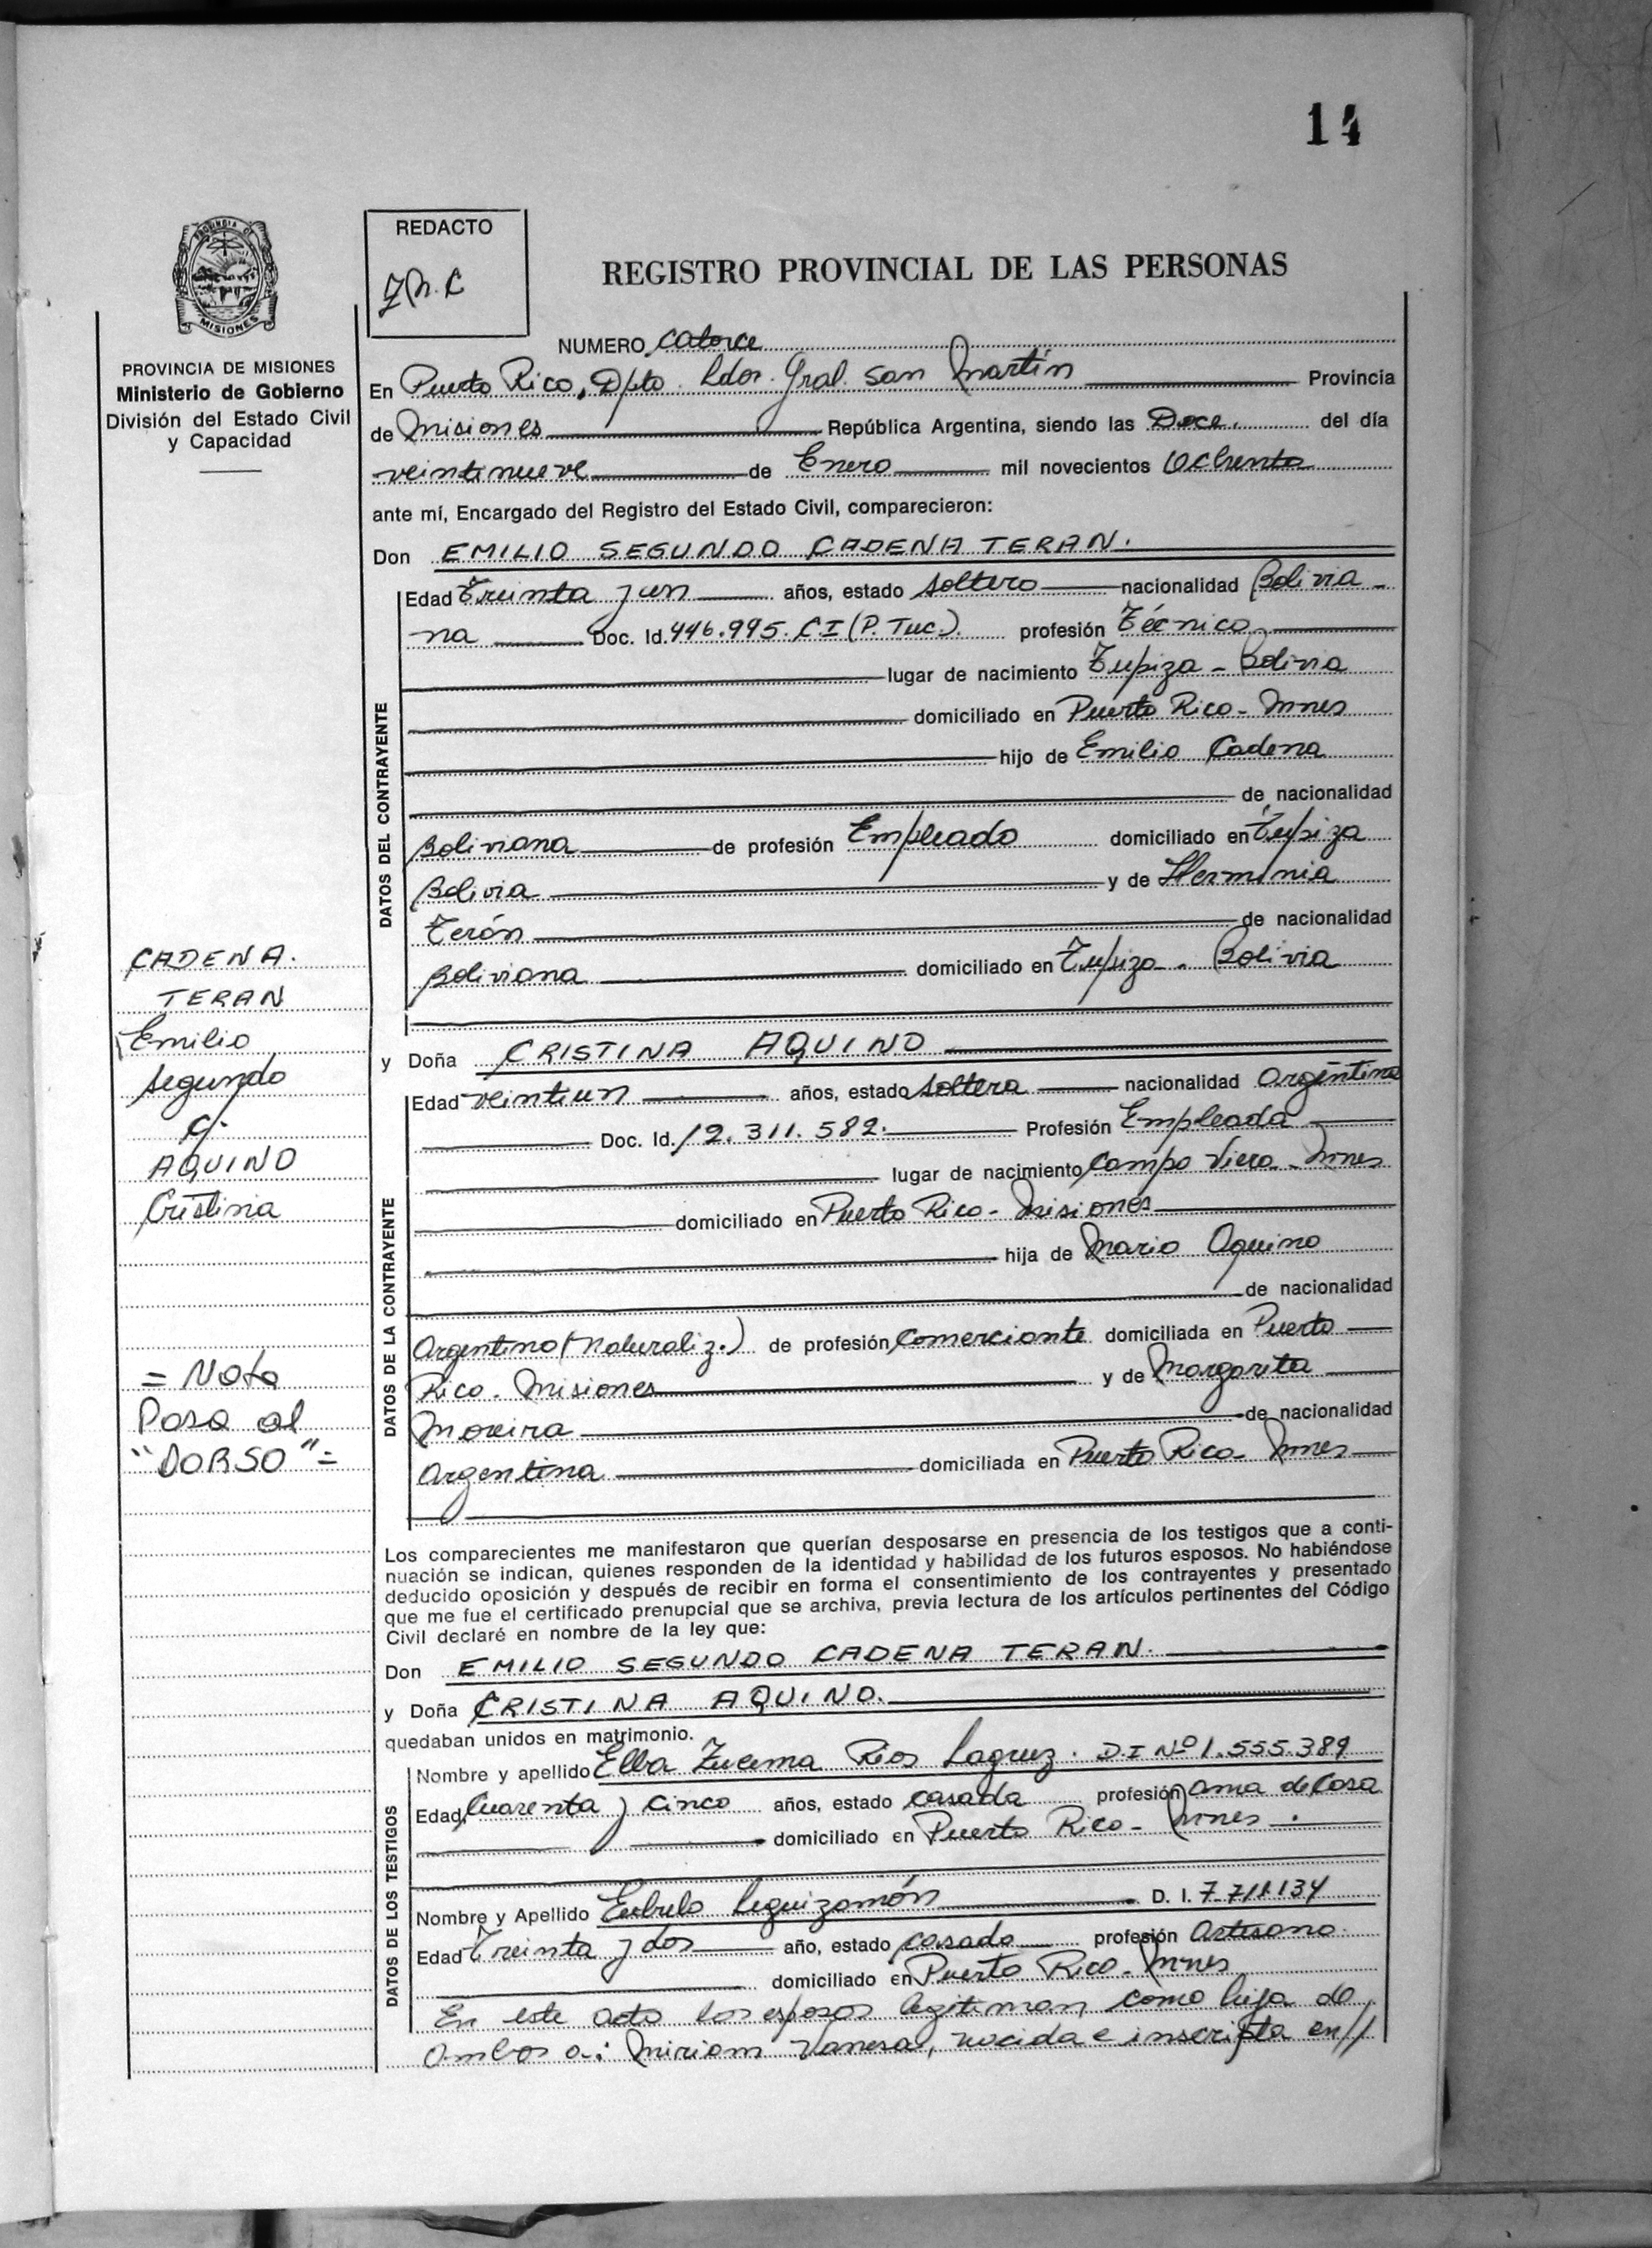 14
REDACTO
REGISTRO PROVINCIAL DE LAS PERSONAS
MISIONES
PROVINCIA DE MISIONES
Ministerio de Gobierno
División del Estado Civil
y Capacidad
NUMERO Catorce
En Puerto Rico, Dpto. Ldor. Gral. San Martín Provincia
de Misiones República Argentina, siendo las Doce. del día
veintinueve de Enero mil novecientos Ochenta
ante mí, Encargado del Registro del Estado Civil, comparecieron:
Don EMILIO SEGUNDO CADENA TERAN.
DATOS DEL CONTRAYENTE
Edad Treinta y un años, estado soltero nacionalidad Bolivia-
na Doc. Id. 446.995. C I (P. Tuc.). profesión Técnico
lugar de nacimiento Tupiza - Bolivia
domiciliado en Puerto Rico - Mnes
hijo de Emilio Cadena
de nacionalidad
Boliviana de profesión Empleado domiciliado en Tupiza
Bolivia y de Herminia
Terán de nacionalidad
Boliviana domiciliado en Tupiza - Bolivia
CADENA.
TERAN
Emilio
Segundo
c/.
AQUINO
Cristina
y Doña CRISTINA AQUINO
DATOS DE LA CONTRAYENTE
Edad veintiun años, estado soltera nacionalidad Argentina
Doc. Id. 12.311.582. Profesión Empleada
lugar de nacimiento Campo Viera - Mnes
domiciliado en Puerto Rico - Misiones
hija de Mario Aquino
de nacionalidad
Argentino (Naturaliz.) de profesión Comerciante domiciliada en Puerto
Rico - Misiones y de Margarita
Moreira de nacionalidad
Argentina domiciliada en Puerto Rico - Mnes
= Nota
Pasa al
"DORSO" =
Los comparecientes me manifestaron que querían desposarse en presencia de los testigos que a conti-
nuación se indican, quienes responden de la identidad y habilidad de los futuros esposos. No habiéndose
deducido oposición y después de recibir en forma el consentimiento de los contrayentes y presentado
que me fue el certificado prenupcial que se archiva, previa lectura de los artículos pertinentes del Código
Civil declaré en nombre de la ley que:
Don EMILIO SEGUNDO CADENA TERAN.
y Doña CRISTINA AQUINO.
quedaban unidos en matrimonio.
DATOS DE LOS TESTIGOS
Nombre y apellido Elba Zucema Rios Lagruz. D.I Nº 1.555.389
Edad Cuarenta y cinco años, estado casada profesión ama de Casa
domiciliado en Puerto Rico - Mnes.
Nombre y Apellido Eubulo Leguizamón D. I. 7.711.134
Edad Treinta y dos año, estado casado profesión Artesano.
domiciliado en Puerto Rico - Mnes
En este acto los esposos legitiman como hija de
ambos a: Miriam Vanesa, nacida e inscripta en//